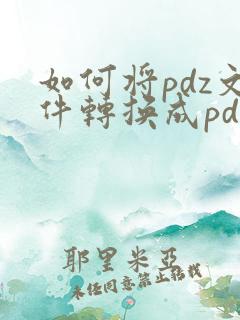 如何将pdz文
件轉换成pd
耶里米亞
未经同意禁止转载